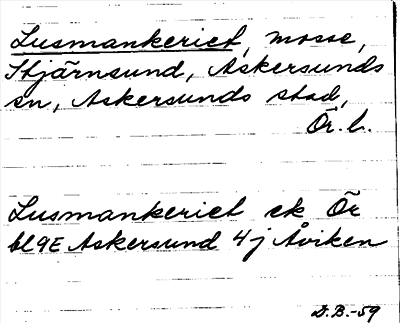 Lusmankeriet, mosse,
Stjärnsund, Askersunds
sn, Askersunds stad,
Ör. l.
Lusmankeriet ek Ör
bl 9E Askersund 4 j Åviken
D.B.-59